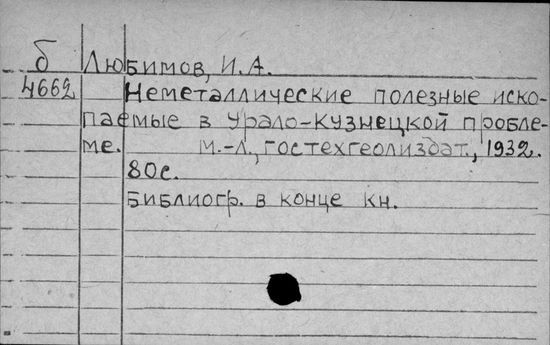 б Любимов, И.А.
4662 Неметаллические полезные иско-
паемые в Урало-Кузнецкой пробле-
ме. М.-Л., Гостехгеолиздат., 1932.
80с.
Библиогр. в конце кн.